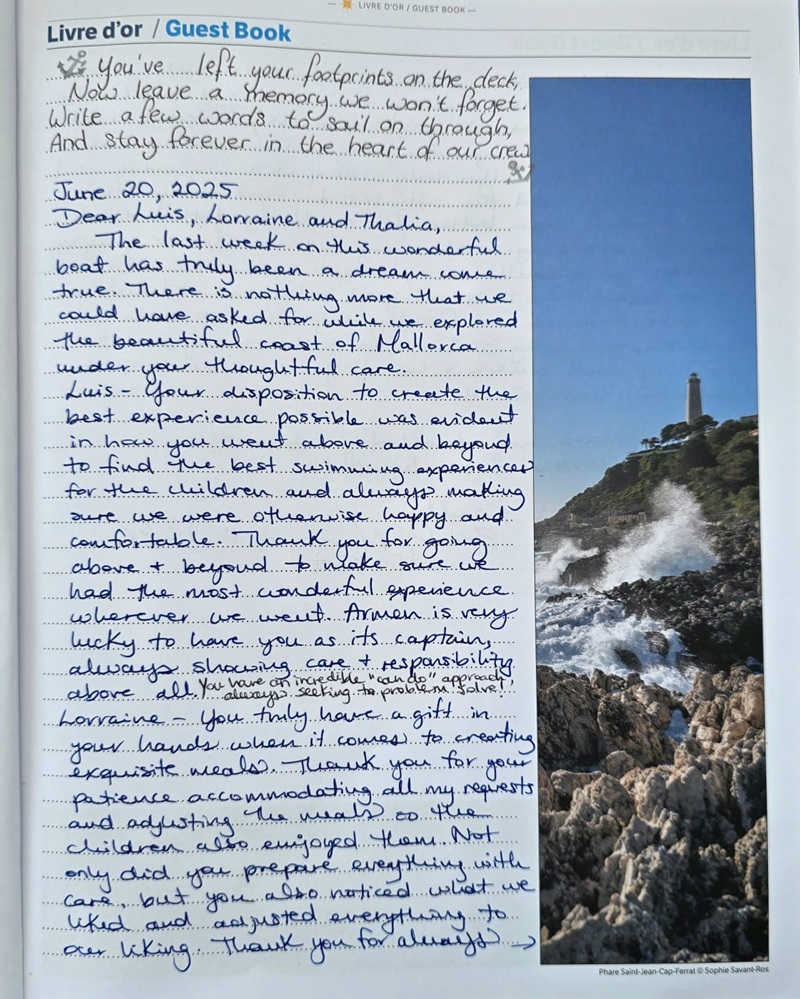 LIVRE D'OR / GUEST BOOK
Livre d'or / Guest Book
You've left your footprints on the deck,
Now leave a memory we won't forget.
Write a few words to sail on through,
And stay forever in the heart of our crew
June 20, 2025
Dear Luis, Lorraine and Thalia,
The last week on this wonderful
boat has truly been a dream come
true. There is nothing more that we
could have asked for while we explored
the beautiful coast of Mallorca
under your thoughtful care.
Luis - Your disposition to create the
best experience possible was evident
in how you went above and beyond
to find the best swimming experiences
for the children and always making
sure we were otherwise happy and
comfortable. Thank you for going
above + beyond to make sure we
had the most wonderful experience
wherever we went. Armen is very
lucky to have you as its captain,
always showing care + responsibility
above all. You have an incredible "can do" approach,
always seeking to problem solve!
Lorraine - You truly have a gift in
your hands when it comes to creating
exquisite meals. Thank you for your
patience accommodating all my requests
and adjusting the meals so the
children also enjoyed them. Not
only did you prepare everything with
care, but you also noticed what we
liked and adjusted everything to
our liking. Thank you for always →
Phare Saint-Jean-Cap-Ferrat © Sophie Savant-Ros